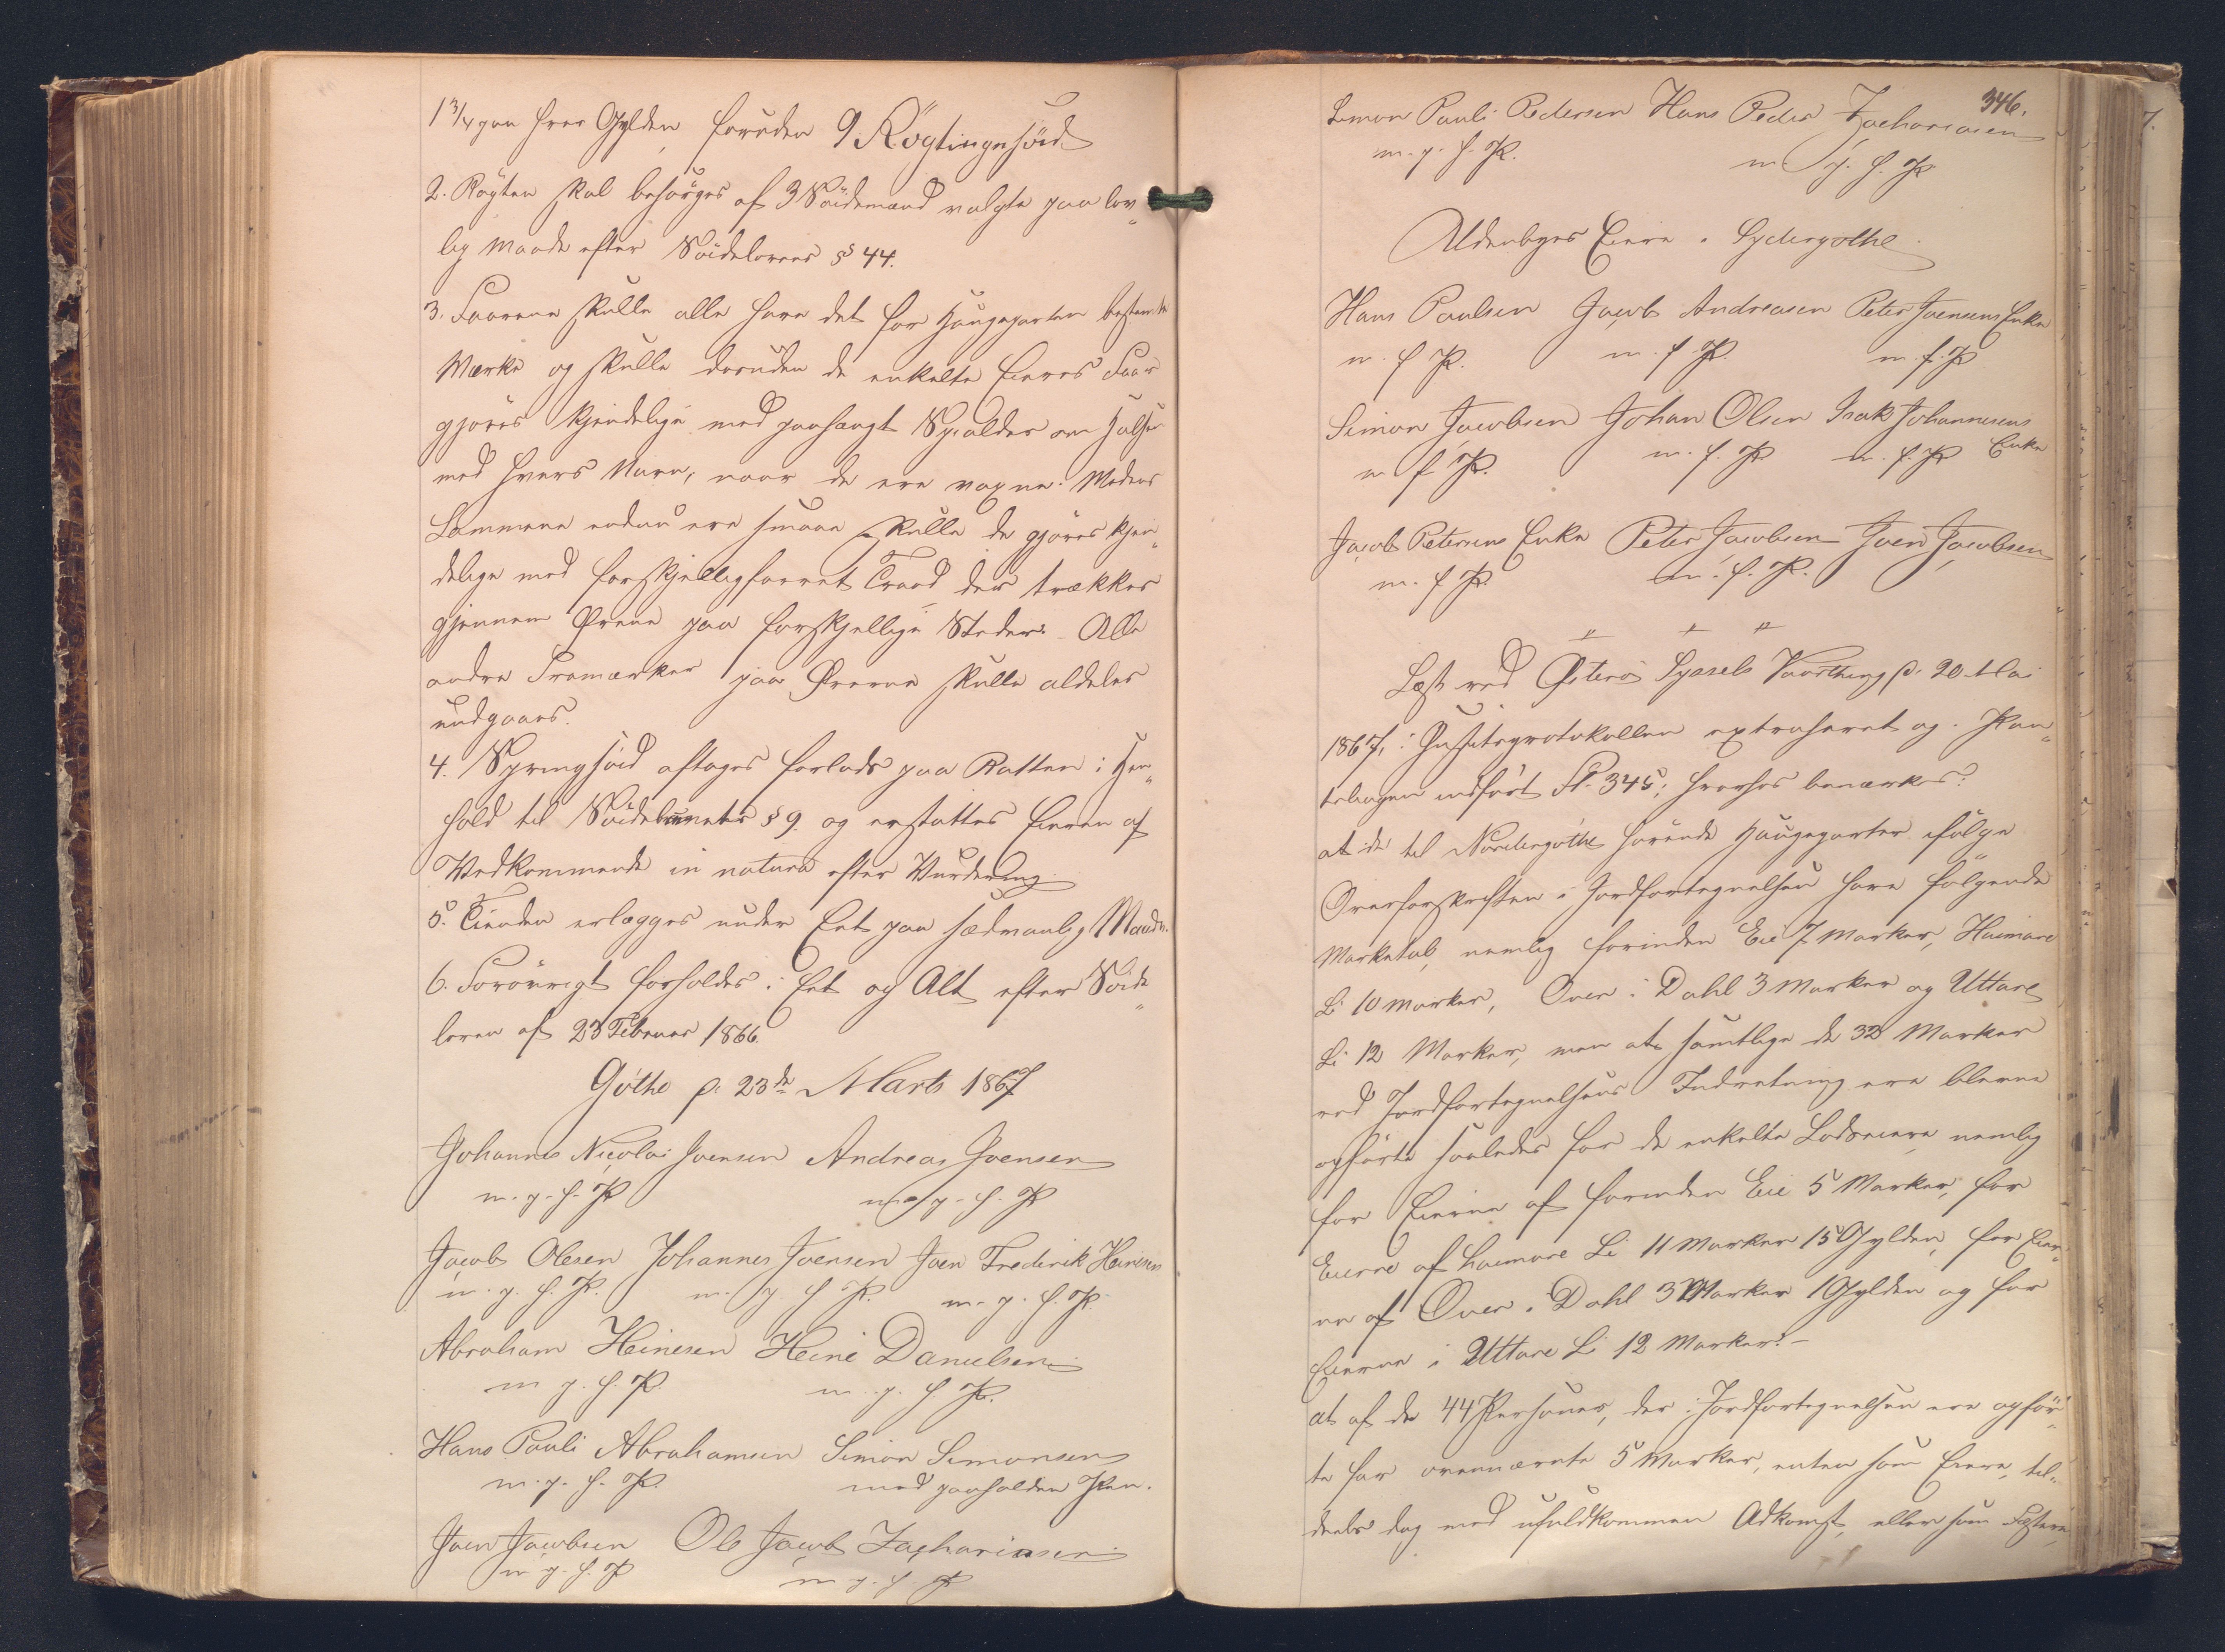 1 3/4 paa hver Gylden, foruden 9 Røgtingssöid
2. Røgten skal besørges af 3 Söidemænd valgte paa lov„
lig Maade efter Söidelovens § 44.
3. Faarene skulle alle have det for Haugeparten bestemte
Mærke og skulle desuden de enkelte Eieres Faar
gjøres kjendelige med paahængt Spialder om Halsen
med hvers Navn, naar de ere voxne. Medens
Lammene endnu ere smaa skulle de gjøres kjen„
delige med forskjelligfarvet Traad der trækkes
gjennem Ørene paa forskjellige Steder. Alle
andre Særmærker paa Ørerne skulle aldeles
undgaaes.
4. Springsöid aftages forlods paa Rætten i Hen„
hold til Söidelovens § 9. og erstattes Eieren af
Vedkommende in natura efter Vurdering.
5. Tienden erlægges under Eet paa sædvanlig Maade.
6. Forøvrigt forholdes i Eet og Alt efter Söide„
loven af 23 Februar 1866.
Gøthe p. 23de Marts 1867
Johannes Nicolai Joensen Andreas Joensen
m. p. h. P. m. p. h. P.
Jacob Olesen Johannes Joensen Joen Frederik Heinesen
m. p. h. P. m. p. h. P. m. p. h. P.
Abraham Heinesen Heine Danielsen
m. p. h. P. m. p. h. P.
Hans Pauli Abrahamsen Simon Simonsen
m. p. h. P. med paaholden Pen.
Joen Jacobsen Ole Jacob Zachariasen
m. p. h. P. m. p. h. P.
346.
Simon Pauli Pedersen Hans Peder Zachariasen
m. p. h. P. m. p. h. P.
Aldenbyes Eiere i Sydergøthe
Hans Poulsen Jacob Andreasen Peter Joensens Enke
m. f. P. m. f. P. m. f. P.
Simon Jacobsen Johan Olsen Isak Johannesens
m. f. P. m. f. P. m. f. P. Enke
Jacob Petersens Enke Peter Jacobsen Joen Jacobsen
m. f. P. m. f. P.
Læst ved Østerø Syssels Vaarthing p. 20. Mai
1867, i Justitsprotokollen extraheret og i Pan„
tebogen indført Fl. 345; hvorhos bemærkes:
at de til Nordregøthe hørende Haugeparter ifølge
Overskriften i Jordfortegnelsen have følgende
Marketal, nemlig forinden Eie 7 Marker, Haimare
Li 10 Marker, Over i Dahl 3 Marker og Uttare
Li 12 Marker, men at samtlige de 32 Marker
ved Jordfortegnelsens Indretning ere blevne
opførte saaledes for de enkelte Lodseiere nemlig
for Eierne af forinden Eie 5 Marker, for
Eierne af Haimare Li 11 Marker 15 Gylden, for Eier„
ne af Over i Dahl 3 Marker 1 Gylden og for
Eierne i Uttare Li 12 Marker. –
at af de 44 Personer, der i Jordfortegnelsen ere opfør„
te for ovennævnte 5 Marker, enten som Eiere, til„
deels dog med ufuldkommen Adkomst, eller som Fæstere,